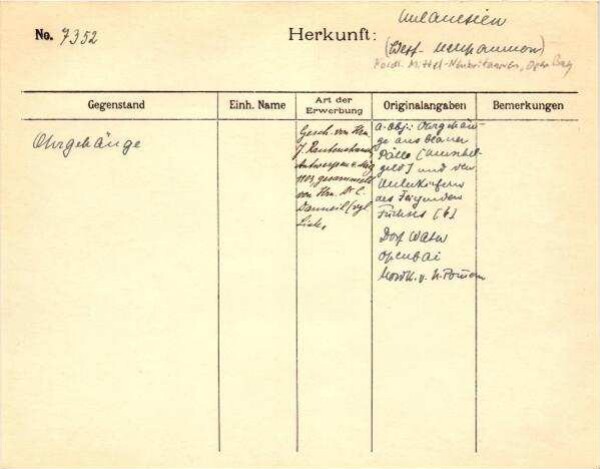 No. 7352 Herkunft: Melanesien
(West- Neupommern)
Nördl. Mittel-Neubritannien, Open Bay
Gegenstand Einh. Name Art der Erwerbung Originalangaben Bemerkungen
Ohrgehänge
Gesch. von Hrn.
J. Rautenstrauch
Antwerpen
1903 gesammelt
von Hrn. Dr. C.
Danneil (vgl.
Liste,
a-Obj: Ohrgehän-
ge aus blauer
Pälle (Muschel-
geld) und den
Unterkiefern
des fliegenden
Fuchses (6)
Dorf Watu
Openbai
Nordk. v. N. Pomm